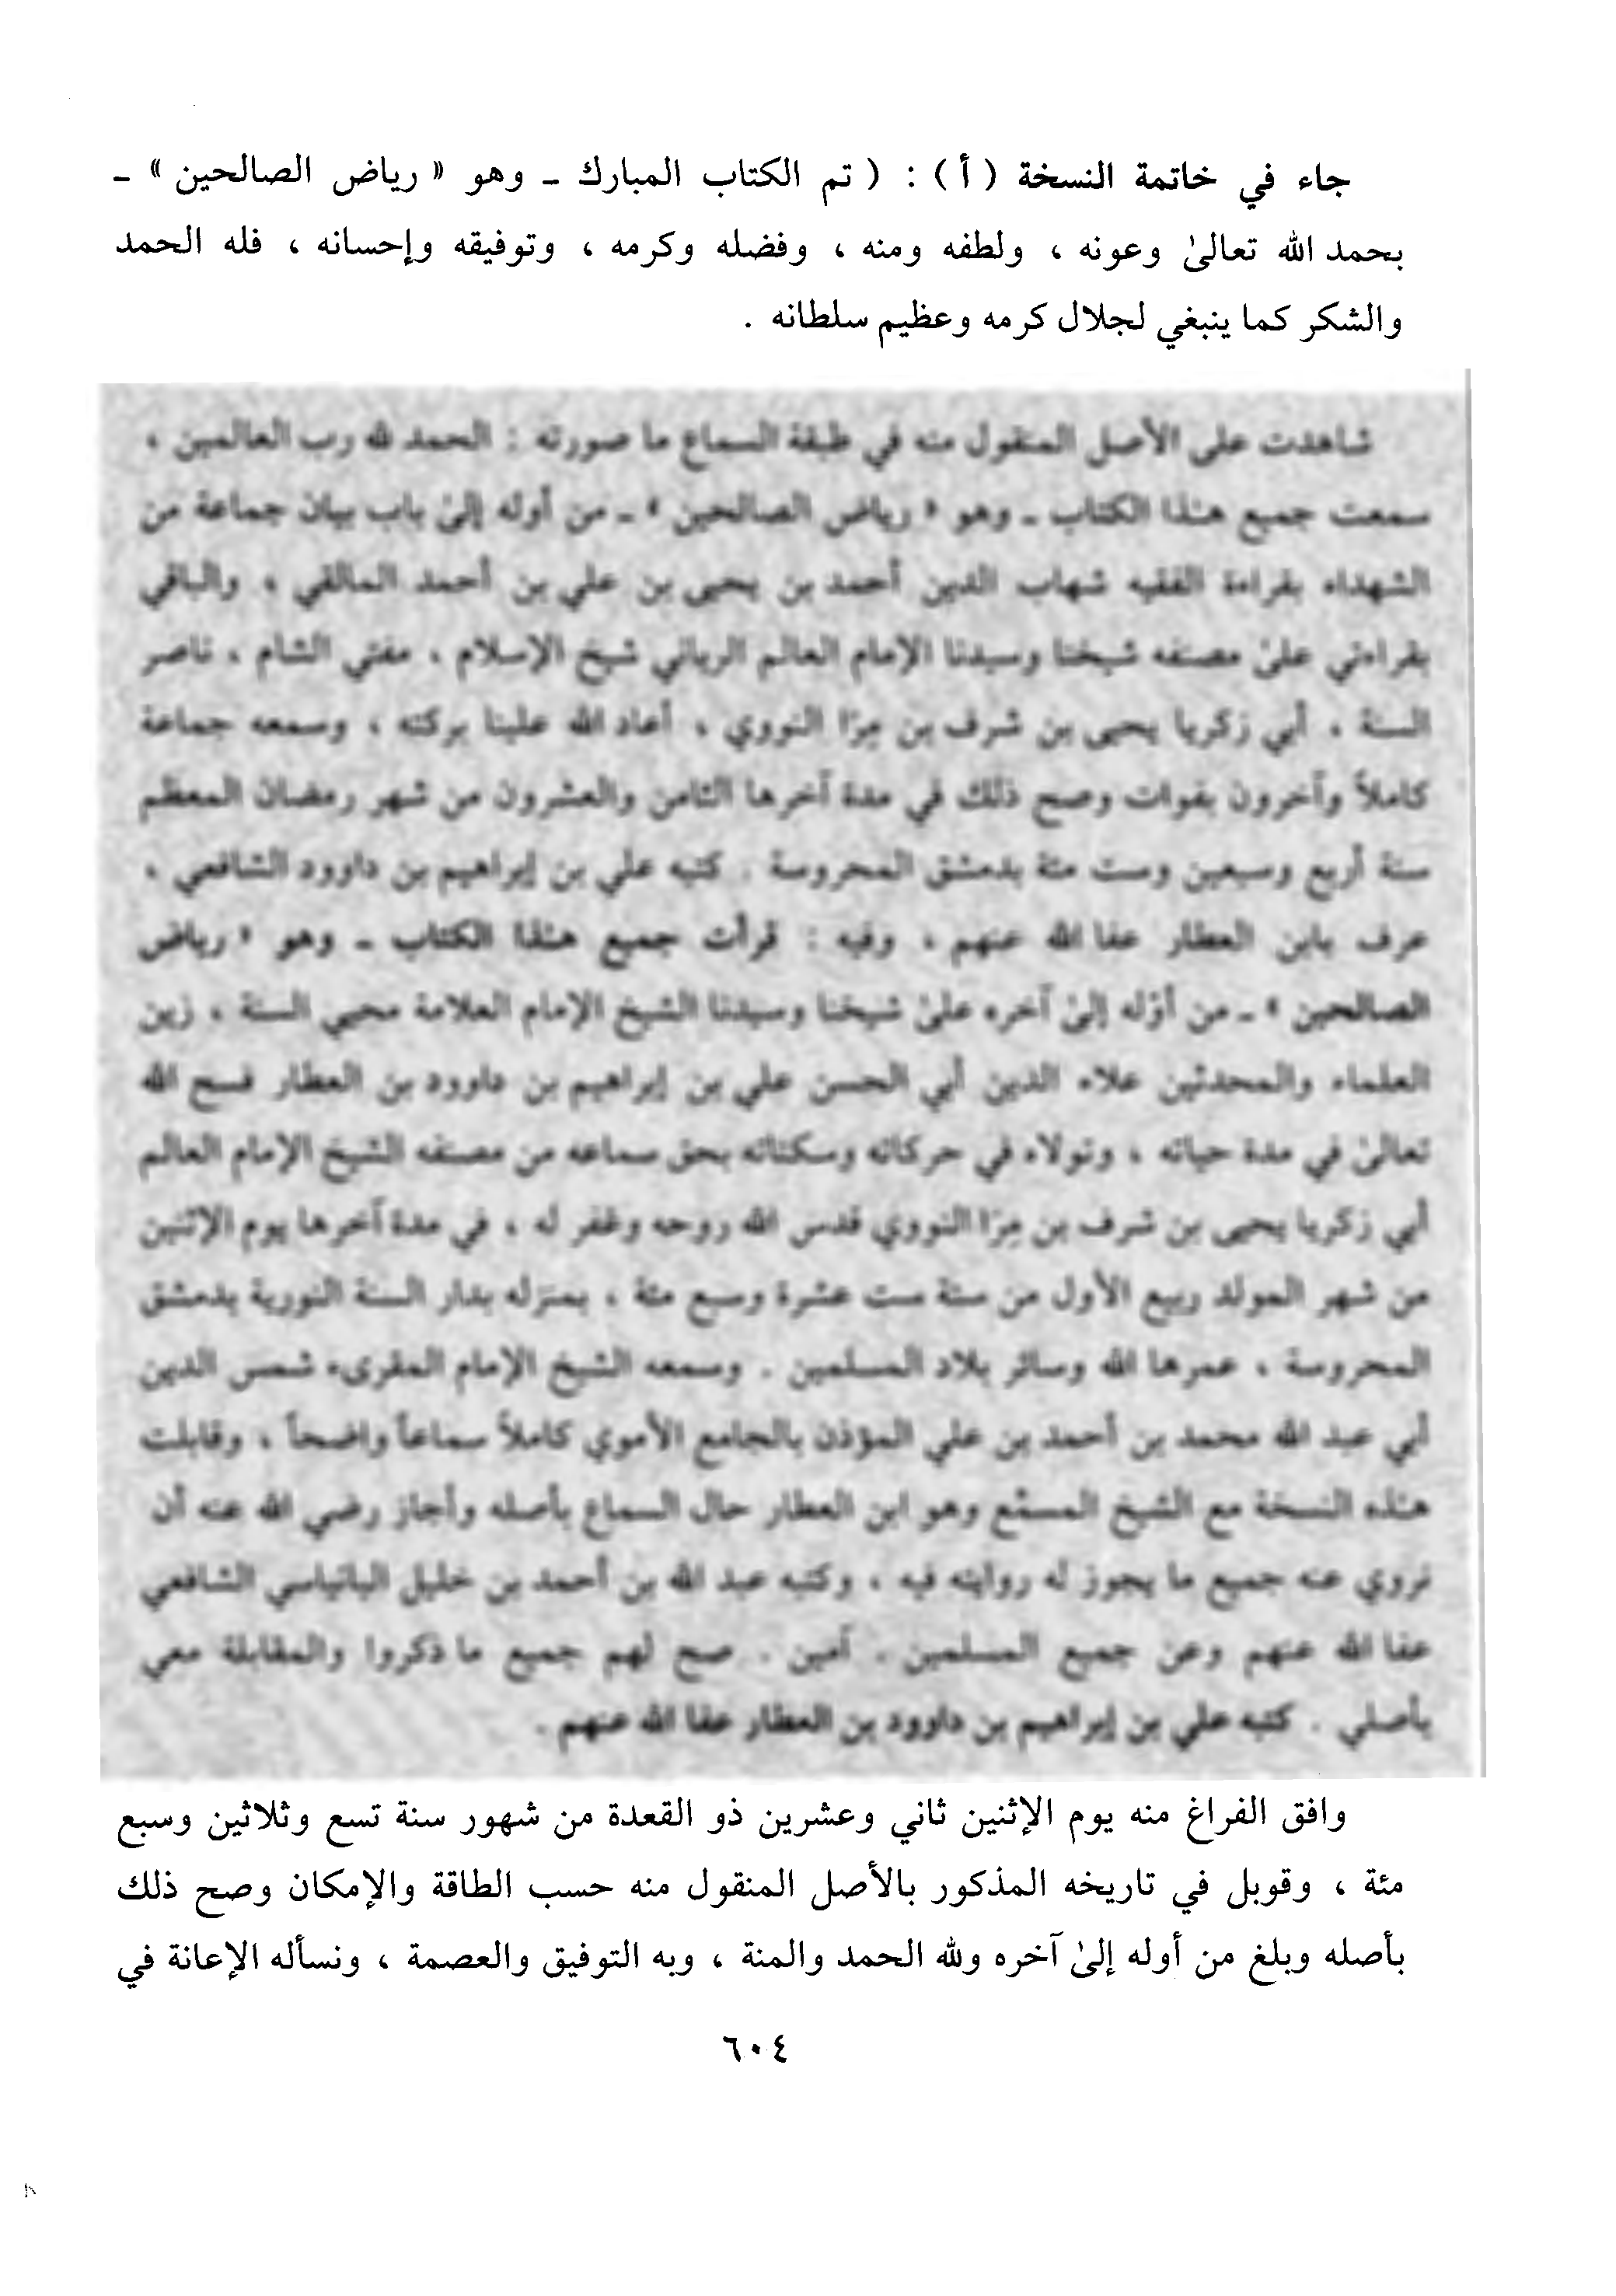 جاء في خاتمة النسخة ( أ ) : ( تم الكتاب المبارك ـ وهو « رياض الصالحين » ـ
بحمد الله تعالىٰ وعونه ، ولطفه ومنه ، وفضله وكرمه ، وتوفيقه وإحسانه ، فله الحمد
والشكر كما ينبغي لجلال كرمه وعظيم سلطانه .
شاهدت على الأصل المنقول منه في طبقة السماع ما صورته : الحمد لله رب العالمين ،
سمعت جميع هـٰذا الكتاب ـ وهو « رياض الصالحين » ـ من أوله إلىٰ باب بيان جماعة من
الشهداء بقراءة الفقيه شهاب الدين أحمد بن يحيى بن علي بن أحمد المالقي ، والباقي
بقراءتي علىٰ مصنفه شيخنا وسيدنا الإمام العالم الرباني شيخ الإسلام ، مفتي الشام ، ناصر
السنة ، أبي زكريا يحيى بن شرف بن مِرَا النووي ، أعاد الله علينا بركته ، وسمعه جماعة
كاملاً وآخرون بفوات وصح ذلك في مدة آخرها الثامن والعشرون من شهر رمضان المعظم
سنة أربع وسبعين وست مئة بدمشق المحروسة . كتبه علي بن إبراهيم بن داوود الشافعي ،
عرف بابن العطار عفا الله عنهم ، وفيه : قرأت جميع هـٰذا الكتاب ـ وهو « رياض
الصالحين » ـ من أوّله إلىٰ آخره علىٰ شيخنا وسيدنا الشيخ الإمام العلامة محيي السنة ، زين
العلماء والمحدثين علاء الدين أبي الحسن علي بن إبراهيم بن داوود بن العطار فسح الله
تعالىٰ في مدة حياته ، وتولاه في حركاته وسكناته بحق سماعه من مصنفه الشيخ الإمام العالم
أبي زكريا يحيى بن شرف بن مِرَا النووي قدس الله روحه وغفر له ، في مدة آخرها يوم الإثنين
من شهر المولد ربيع الأول من سنة ست عشرة وسبع مئة ، بمنزله بدار السنة النورية بدمشق
المحروسة ، عمرها الله وسائر بلاد المسلمين . وسمعه الشيخ الإمام المقرىء شمس الدين
أبي عبد الله محمد بن أحمد بن علي المؤذن بالجامع الأموي كاملاً سماعاً واضحاً ، وقابلت
هـٰذه النسخة مع الشيخ المسمّع وهو ابن العطار حال السماع بأصله وأجاز رضي الله عنه أن
نروي عنه جميع ما يجوز له روايته فيه ، وكتبه عبد الله بن أحمد بن خليل البانياسي الشافعي
عفا الله عنهم وعن جميع المسلمين . آمين . صح لهم جميع ما ذكروا والمقابلة معي
بأصلي . كتبه علي بن إبراهيم بن داوود بن العطار عفا الله عنهم .
وافق الفراغ منه يوم الإثنين ثاني وعشرين ذو القعدة من شهور سنة تسع وثلاثين وسبع
مئة ، وقوبل في تاريخه المذكور بالأصل المنقول منه حسب الطاقة والإمكان وصح ذلك
بأصله وبلغ من أوله إلىٰ آخره ولله الحمد والمنة ، وبه التوفيق والعصمة ، ونسأله الإعانة في
٦٠٤